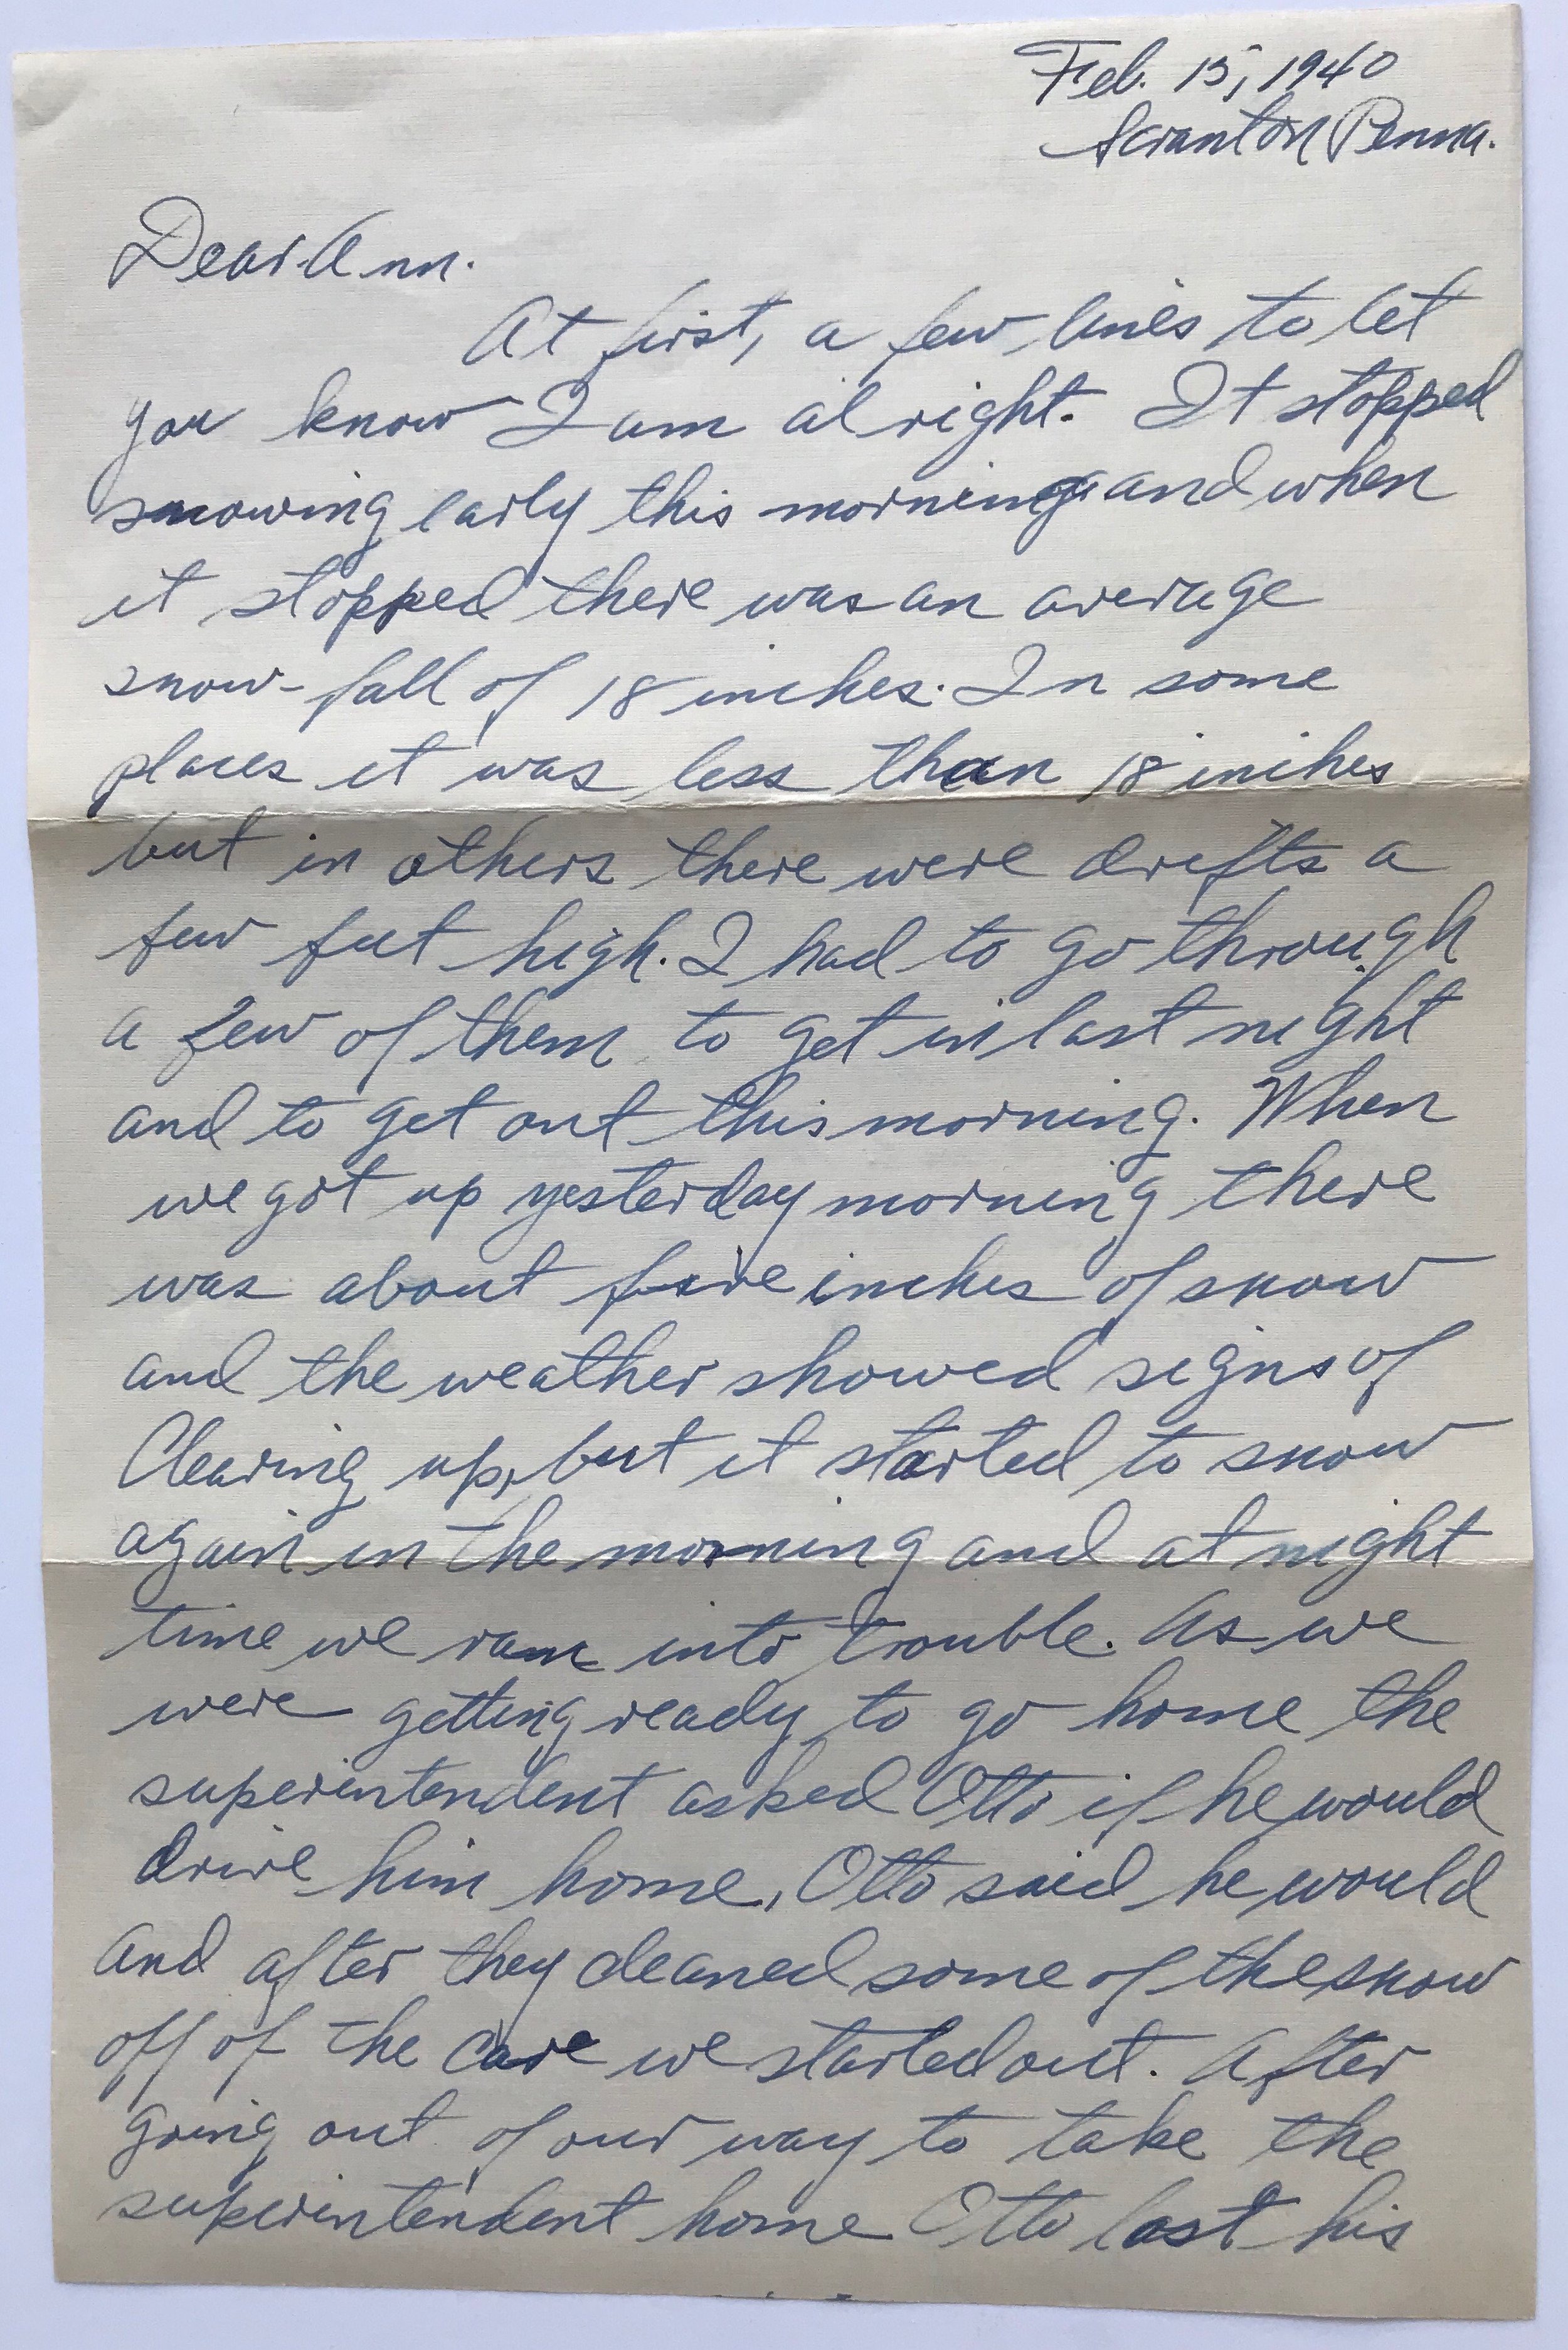 Feb. 15, 1940
Scranton Penna.
Dear Ann.
At first, a few lines to let
you know I am alright. It stopped
snowing early this morning and when
it stopped there was an average
snow-fall of 18 inches. In some
places it was less than 18 inches
but in others there were drifts a
few feet high. I had to go through
a few of them to get in last night
and to get out this morning. When
we got up yesterday morning there
was about five inches of snow
and the weather showed signs of
Clearing up, but it started to snow
again in the morning and at night
time we ran into trouble. As we
were getting ready to go home the
superintendent asked Otto if he would
drive him home, Otto said he would
and after they cleaned some of the snow
off of the care we started out. After
going out of our way to take the
superintendent home Otto lost his